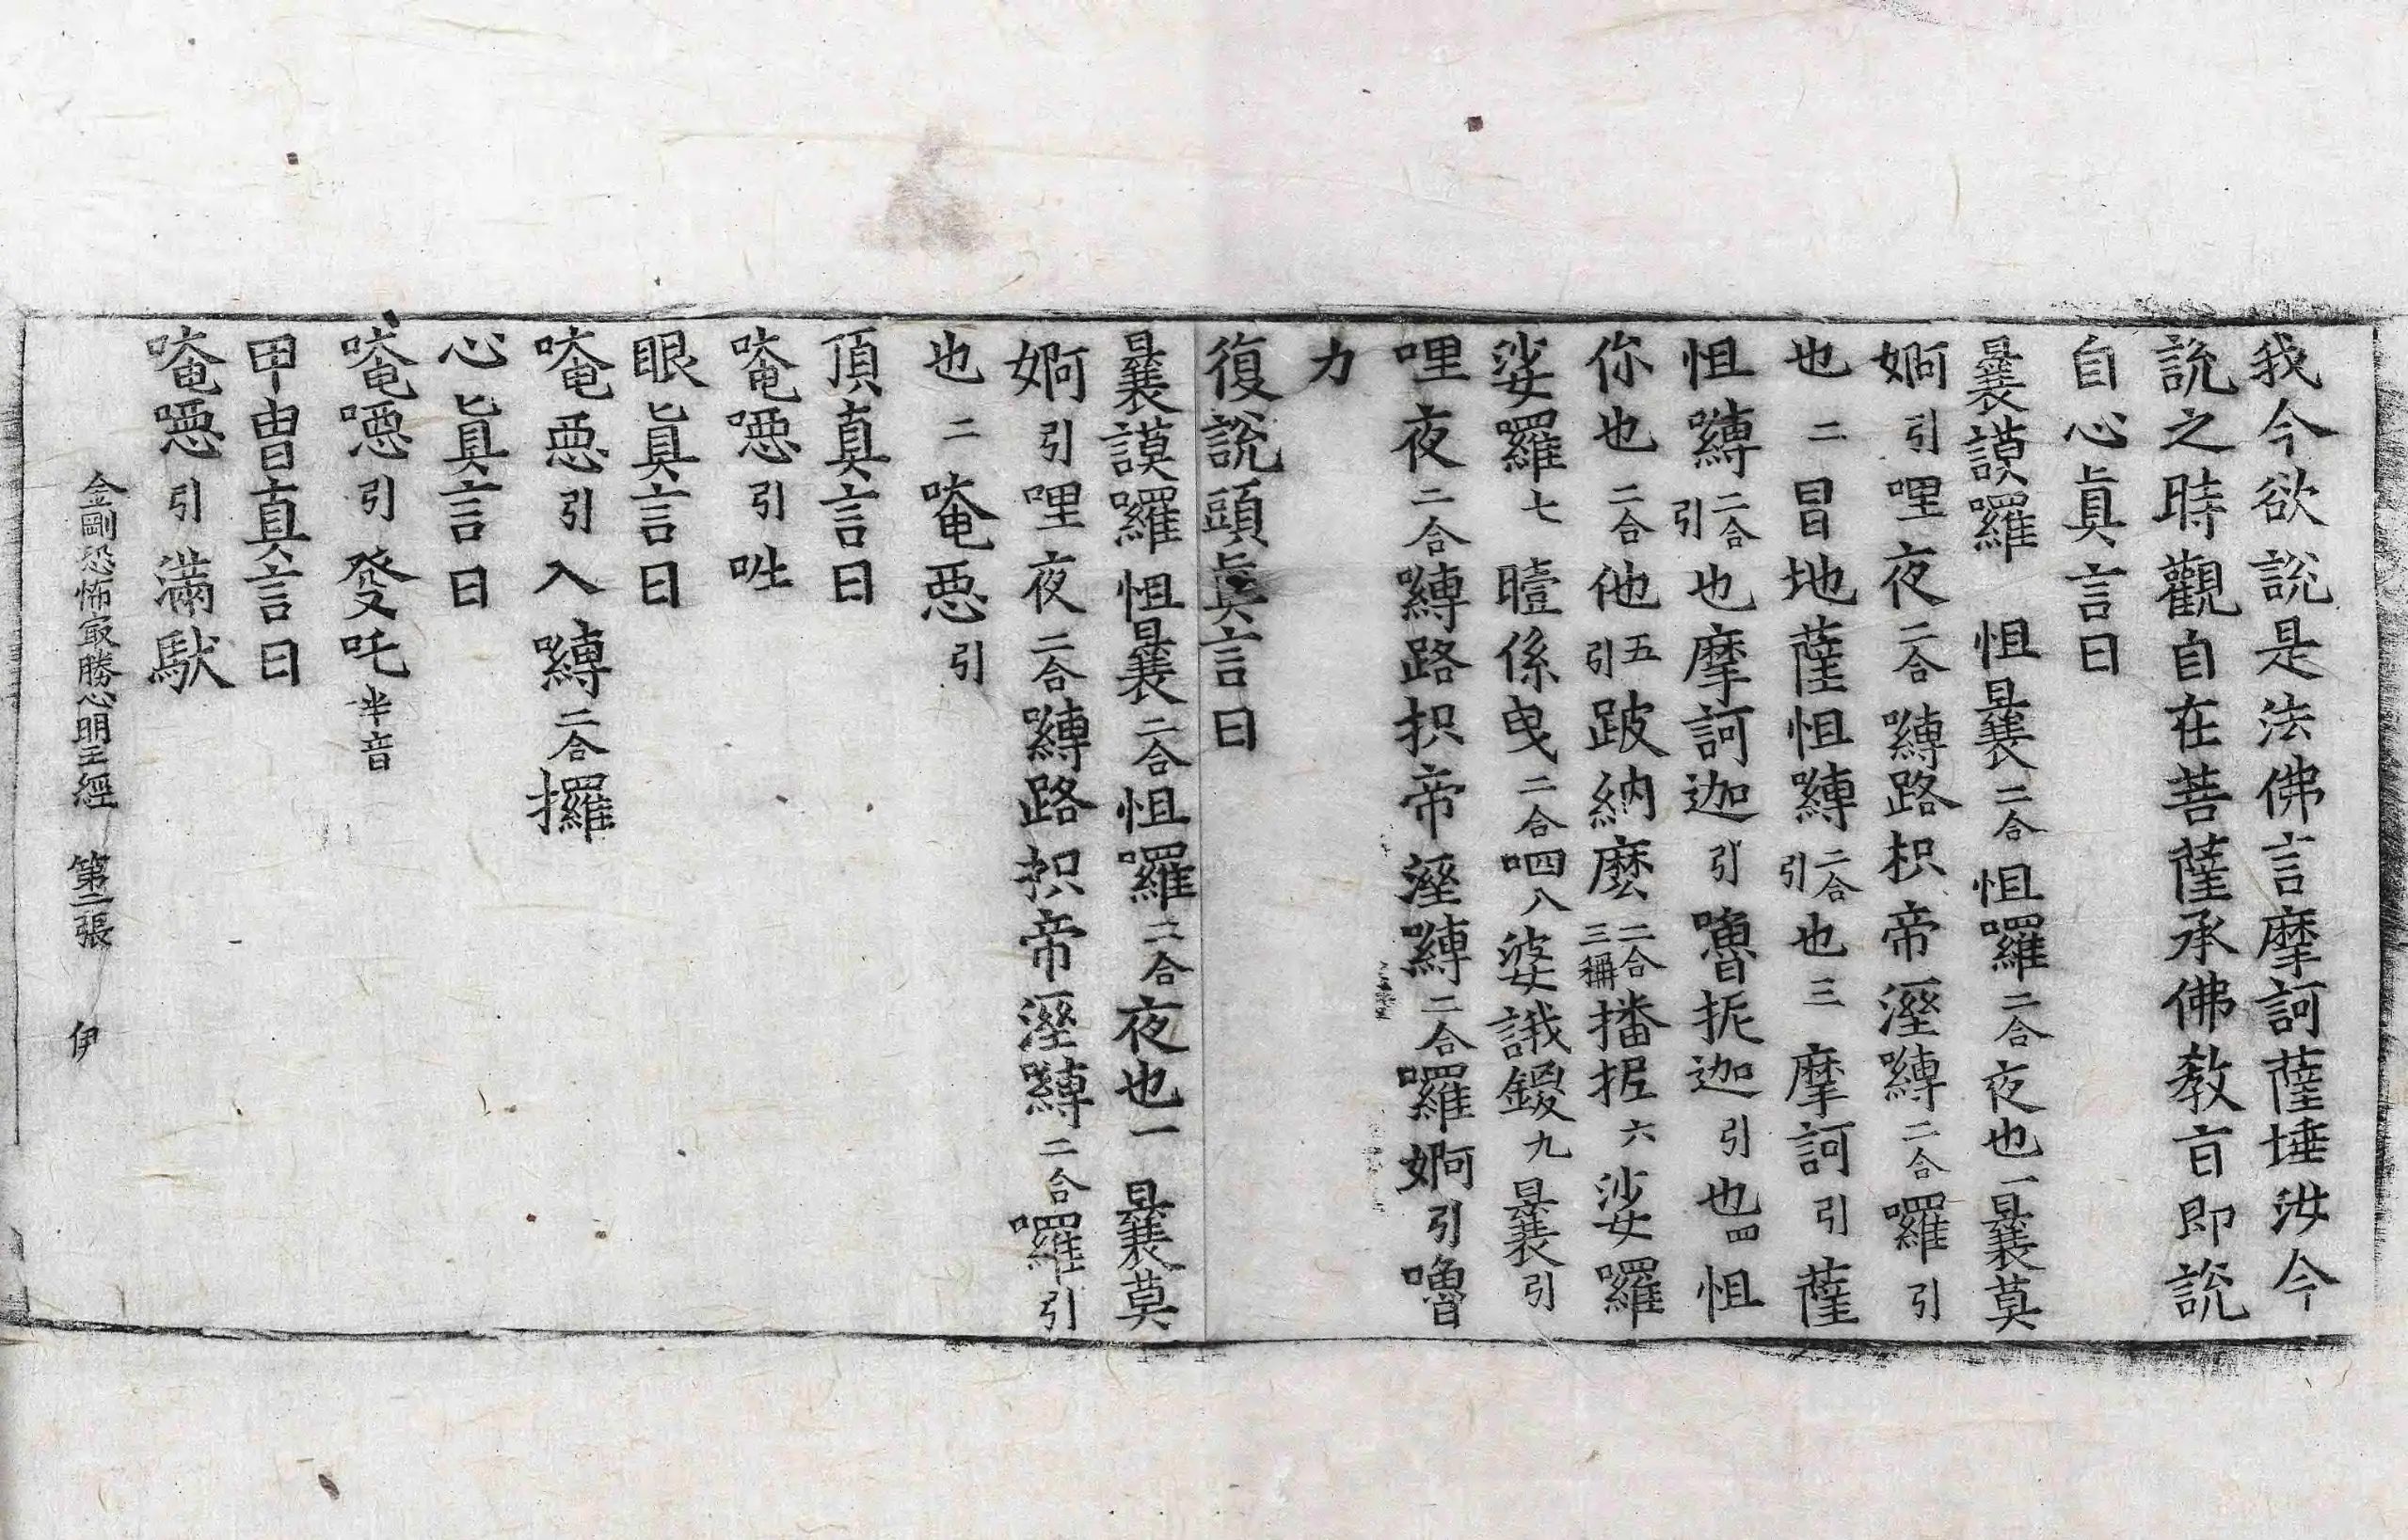 我今欲說是法佛言摩訶薩埵汝今
說之時觀自在菩薩承佛教旨即說
自心眞言曰
曩謨囉 怛曩二合怛囉二合夜也一曩莫
婀引哩夜二合嚩路枳帝溼嚩二合囉引
也二冒地薩怛嚩二合引也三摩訶引薩
怛嚩二合引也摩訶迦引嚕抳迦引也四怛
你也二合他五引跛納麽二合三稱播抳六娑囉
娑囉七曀係曳二合呬八婆誐鑁九曩引
哩夜二合嚩路枳帝溼嚩二合囉婀引嚕
力
復說頭眞言曰
曩謨囉怛曩二合怛囉二合夜也一曩莫
婀引哩夜二合嚩路枳帝溼嚩二合囉引
也二唵惡引
頂真言曰
唵噁引
眼眞言曰
唵惡引入嚩二合攞
心眞言曰
唵噁引發吒半音
甲冑真言曰
唵噁引滿馱
金剛恐怖冣勝心明王經 第二張 伊